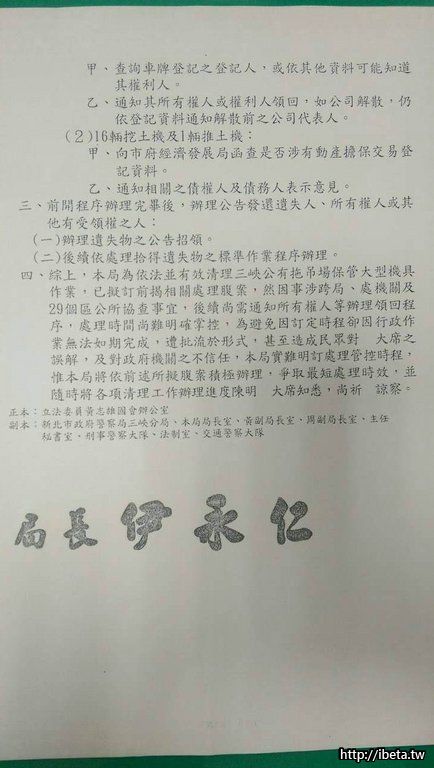 甲、查詢車牌登記之登記人，或依其他資料可能知道
其權利人。
乙、通知其所有權人或權利人領回，如公司解散，仍
依登記資料通知解散前之公司代表人。
(２)16輛挖土機及1輛推土機：
甲、向市府經濟發展局函查是否涉有動產擔保交易登
記資料。
乙、通知相關之債權人及債務人表示意見。
三、前開程序辦理完畢後，辦理公告發還遺失人、所有權人或其
他有受領權之人：
(一)辦理遺失物之公告招領。
(二)後續依處理拾得遺失物之標準作業程序辦理。
四、綜上，本局為依法並有效清理三峽公有拖吊場保管大型機具
作業，已擬訂前揭相關處理腹案，然因事涉跨局、處機關及
29個區公所協查事宜，後續尚需通知所有權人等辦理領回程
序，處理時間尚難明確掌控，為避免因訂定時程卻因行政作
業無法如期完成，遭批流於形式，甚至造成民眾對　大席之
誤解，及對政府機關之不信任，本局實難明訂處理管控時程，
惟本局將依前述所擬腹案積極辦理，爭取最短處理時效，並
隨時將各項清理工作辦理進度陳明　大席知悉，尚祈　諒察。
正本：立法委員黃志雄國會辦公室
副本：新北市政府警察局三峽分局、本局局長室、黃副局長室、周副局長室、主任
秘書室、刑事警察大隊、法制室、交通警察大隊
局長 伊永仁
http://ibeta.tw